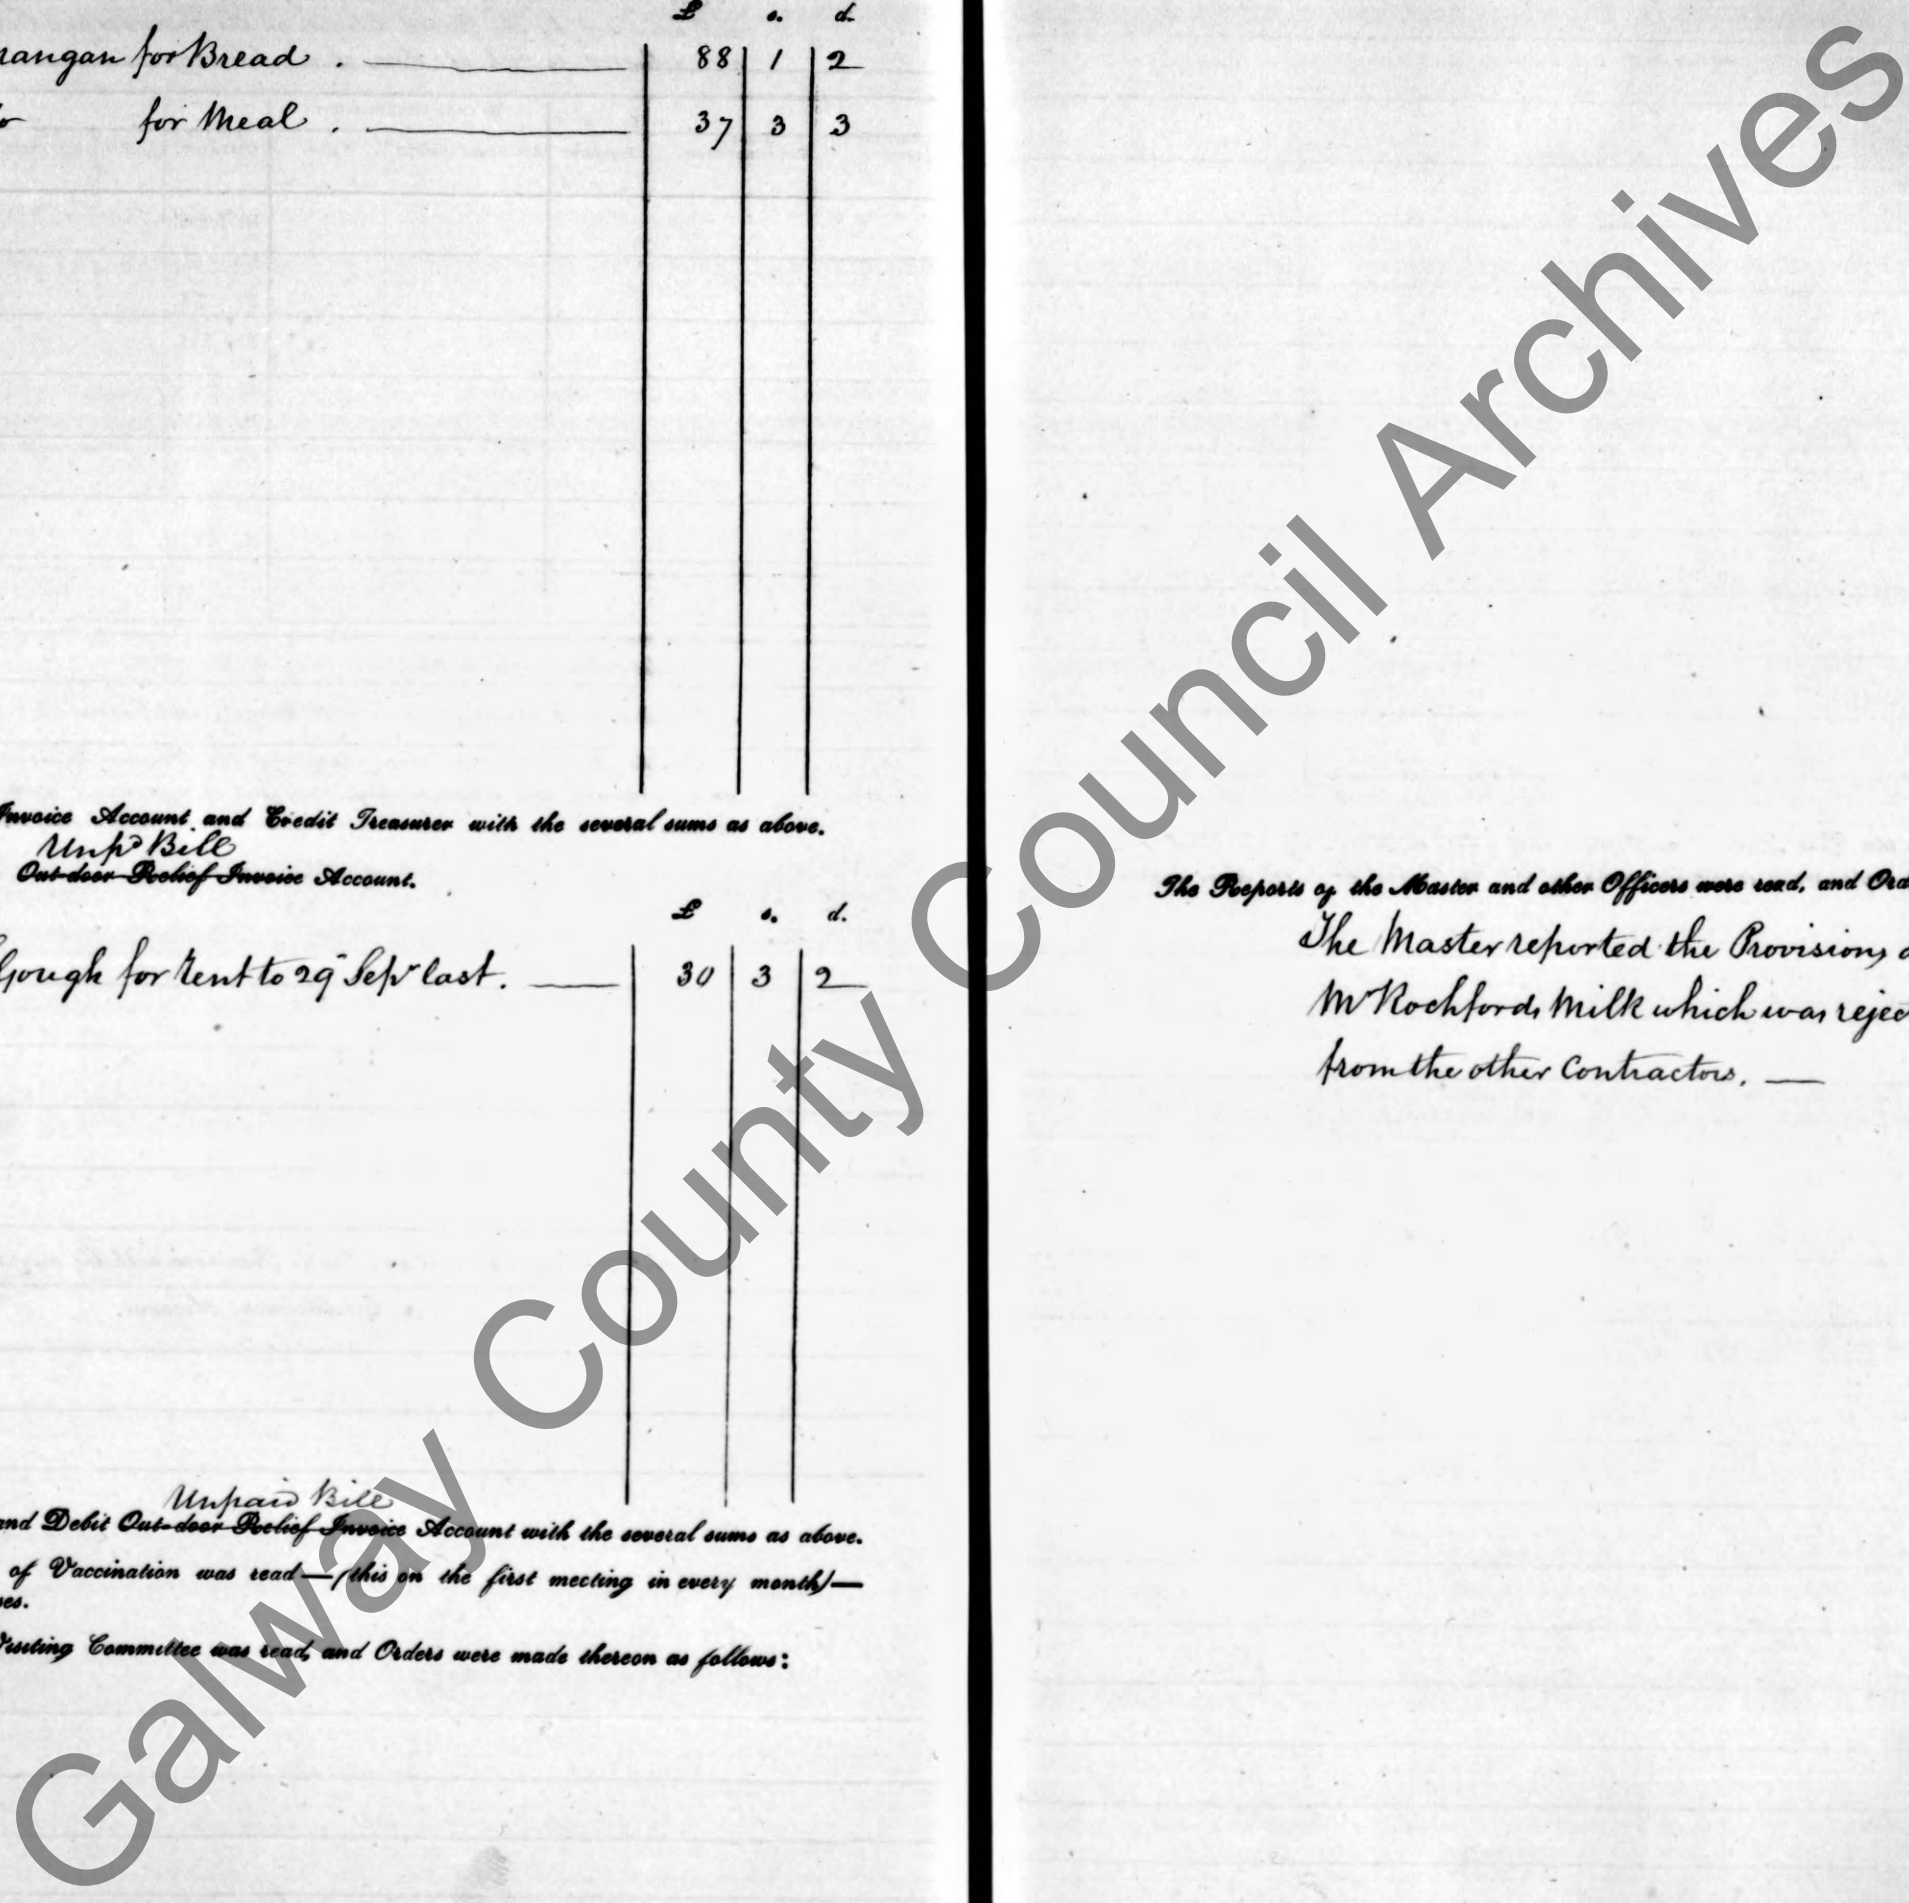 £ s. d.
rangan for Bread . 88 1 2
for Meal . 37 3 3
Invoice Account and Credit Treasurer with the several sums as above.
Unpd Bill
Out-door Relief Invoice Account.
£ s. d.
Gough for rent to 29 Sepr last. 30 3 2
Unpaid Bill
and Debit Out-door Relief Invoice Account with the several sums as above.
of Vaccination was read—(this on the first meeting in every month)—
ses.
Visiting Committee was read, and Orders were made thereon as follows:
The Reports of the Master and other Officers were read, and Ord
The Master reported the Provisions
Mr Rochfords Milk which was rejec
from the other Contractors. —
Galway County Council Archives